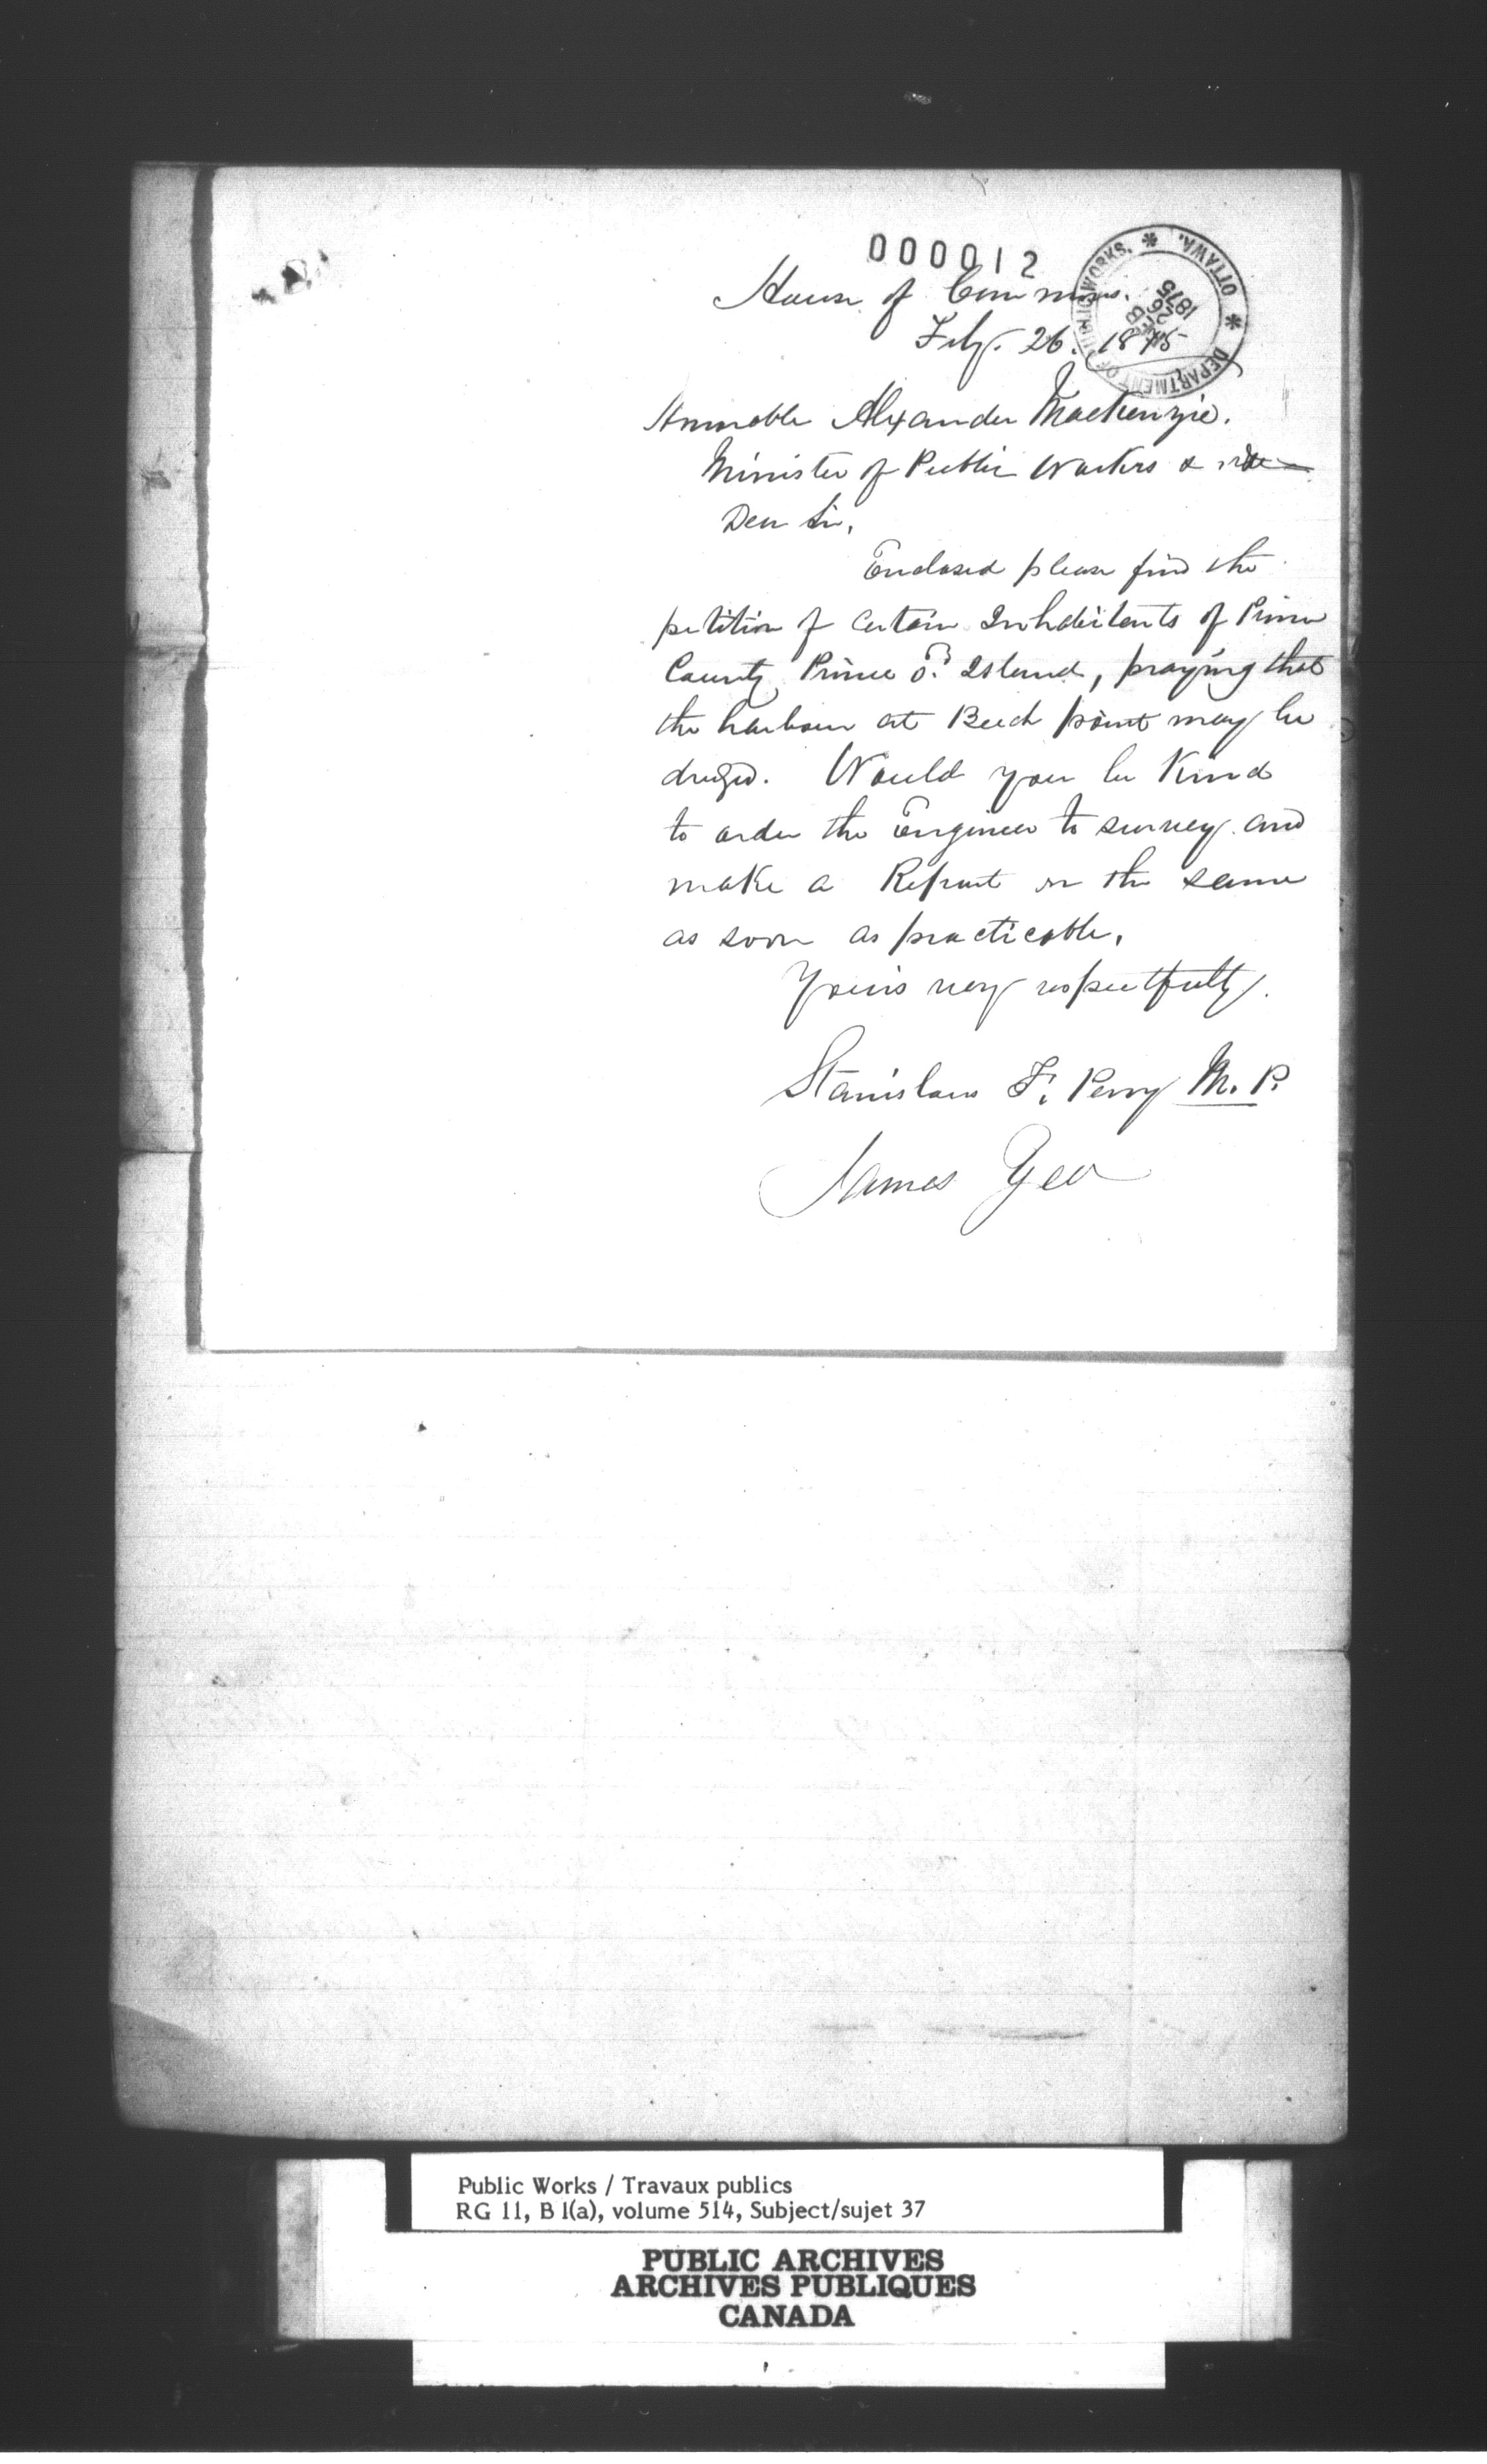 000012
DEPARTMENT OF PUBLIC WORKS. * OTTAWA. *
FEB 26 1875
House of Commons.
Feby. 26. 1875
Honorable Alexander Mackenzie.
Minister of Public Works &
Dear Sir,
Enclosed please find the
petition of certain Inhabitants of Prince
County Prince Island, praying that
the harbour at Beech point may be
dredged. Would you be Kind
to order the Engineer to survey and
make a Report on the same
as soon as practicable.
Yours very respectfully.
Stanislaus F. Perry M. P.
James Yeo
Public Works / Travaux publics
RG 11, B 1(a), volume 514, Subject/sujet 37
PUBLIC ARCHIVES
ARCHIVES PUBLIQUES
CANADA